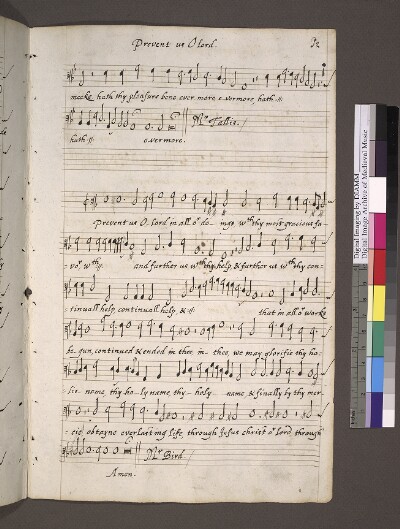 Prevent us O lord.
meeke hath thy pleasure bene ever more evermore hath :||:
hath :||: evermore. Mr Tallis.
Prevent us O. lord in all or do- ings wth thy most gracious fa-
vor wth thy. and further us wth thy help & further us wth thy con-
tinuall help, continuall help, & :||: that in all or works
be gun, continued & ended in thee, in- thee, we may glorifie thy ho-
lie name, thy ho- ly name, thy- holy name & finally by thy mer-
cie obtayne everlasting life through Jesus christ or Lord through
Mr Bird.
Amen.
Digital Imaging by DIAMM
Digital Image Archive of Medieval Music